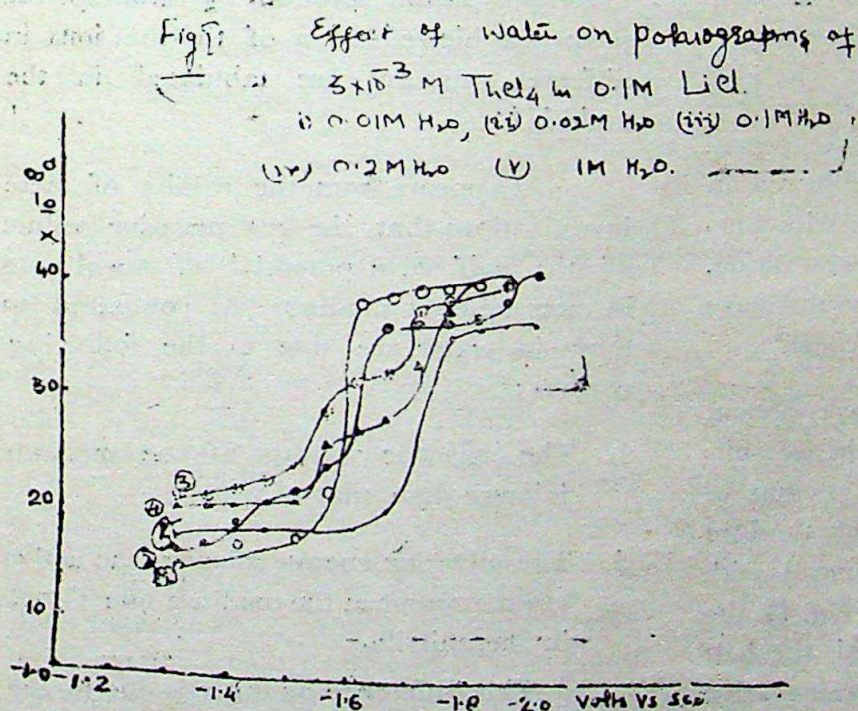 Fig 1: Effect of water on polarographs of
3x10⁻³ M ThCl4 in 0.1M LiCl.
i) 0.01M H2O, (ii) 0.02M H2O (iii) 0.1M H2O,
(iv) 0.2M H2O (v) 1M H2O.
x 10⁻⁸ a
40
30
③
20
④
②
10
-1.0 -1.2 -1.4 -1.6 -1.8 -2.0 Volts Vs SCE